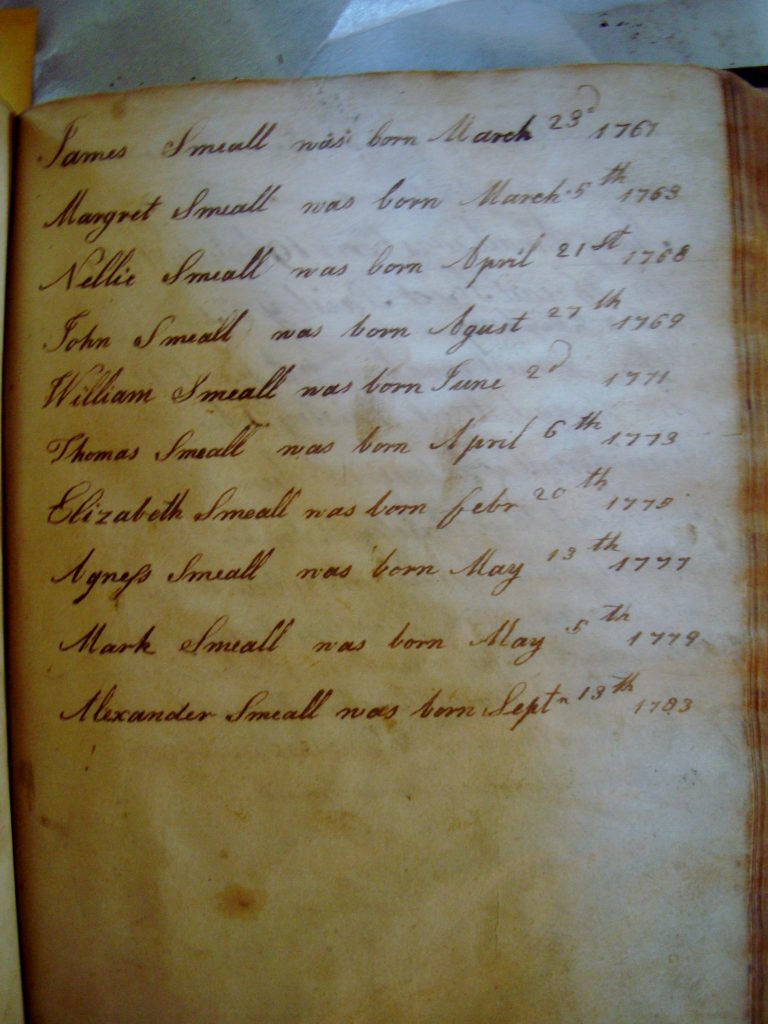 James Smeall was born March 23d 1761
Margret Smeall was born March 5th 1763
Nellie Smeall was born April 21st 1768
John Smeall was born Agust 27th 1769
William Smeall was born June 2d 1771
Thomas Smeall was born April 6th 1773
Elizabeth Smeall was born febr 20th 1775
Agness Smeall was born May 13th 1777
Mark Smeall was born May 5th 1779
Alexander Smeall was born Septn 13th 1783